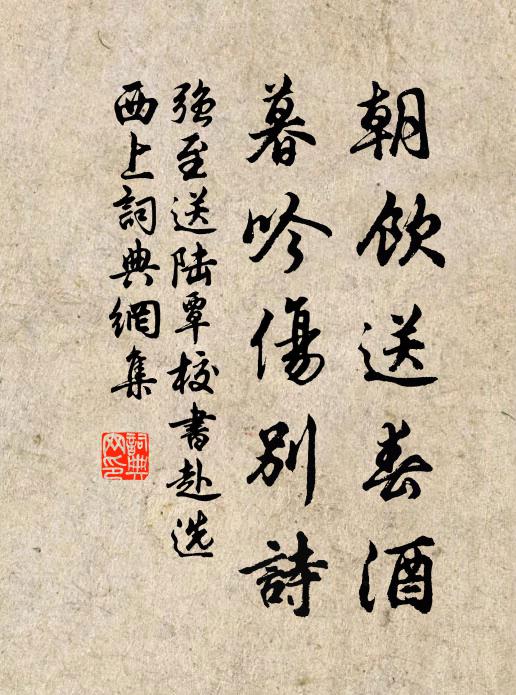 朝飲送春酒
暮吟傷別詩
強至送陆覃校書赴选
西上詞典網集
詞典网印